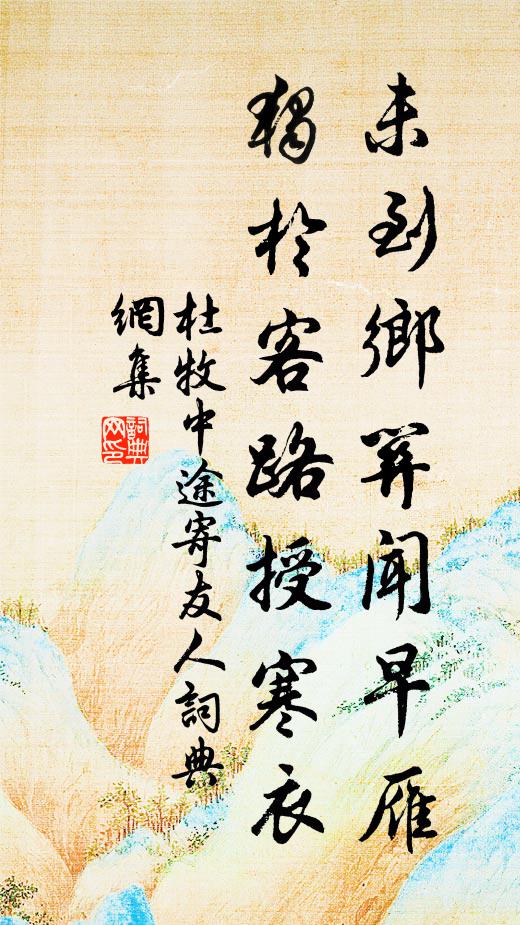 未到鄉關聞早雁
獨於客路授寒衣
杜牧中途寄友人詞典
網集
詞典网印